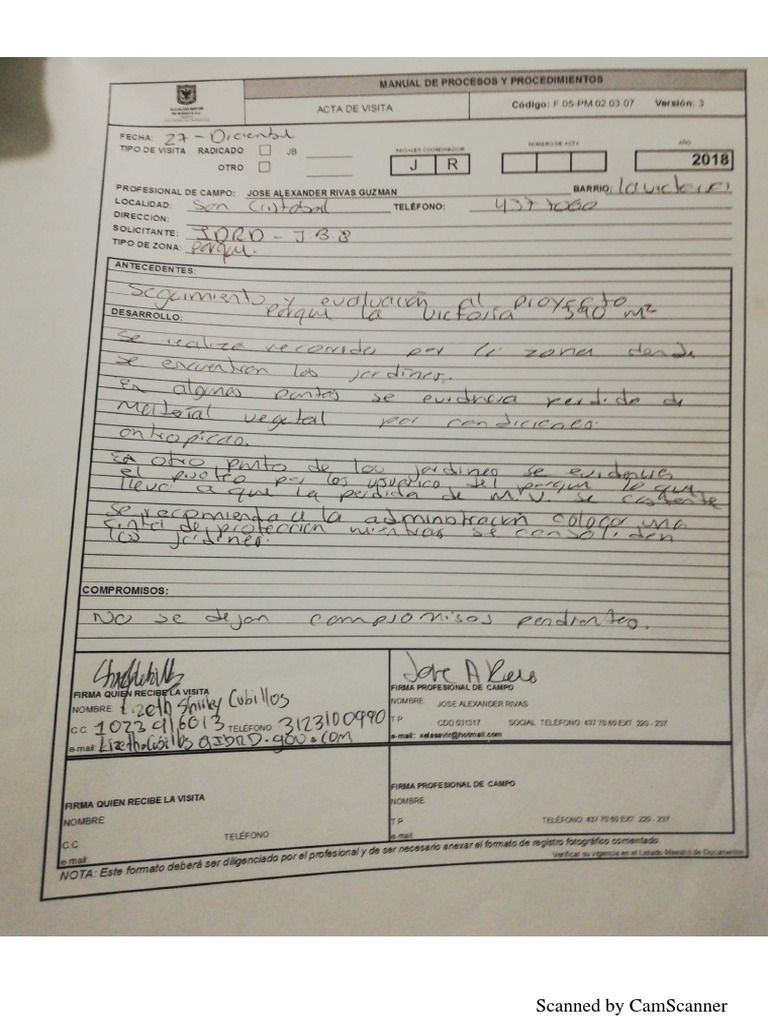 ALCALDÍA MAYOR
DE BOGOTÁ D.C.
MANUAL DE PROCESOS Y PROCEDIMIENTOS
ACTA DE VISITA
Código: F.05-PM.02.03.07 Versión: 3
FECHA: 27 - Diciembre
TIPO DE VISITA RADICADO JB
INICIALES COORDINADOR
J R
NÚMERO DE ACTA
AÑO
2018
OTRO
PROFESIONAL DE CAMPO: JOSE ALEXANDER RIVAS GUZMAN
BARRIO: La victoria
LOCALIDAD: San Cristobal TELÉFONO: 4377060
DIRECCIÓN:
SOLICITANTE: IDRD - J.B.B
TIPO DE ZONA: parque.
ANTECEDENTES:
Seguimiento y evaluación al proyecto
parque la victoria 390 m2
DESARROLLO:
Se realiza recorrido por la zona donde
se encuentran los jardines.
En algunos puntos se evidncia perdida de
material vegetal por condiciones
antropicas.
En otro punto de los jardines se evidencia
el pisoteo por los usuarios del parque lo que
lleva a que la perdida de M.V. se
se recomienda a la administración colocar una
cinta de protección mientras se consoliden
los jardines.
COMPROMISOS:
No se dejan compromisos pendientes.
FIRMA QUIEN RECIBE LA VISITA
NOMBRE: Lizeth Shirley Cubillos
C.C 1023916013 TELÉFONO: 3123100990
e-mail: Lizeth.Cubillos@IDRD.gov.com
Jose A Rivas
FIRMA PROFESIONAL DE CAMPO
NOMBRE JOSE ALEXANDER RIVAS
T.P CDO 031317 SOCIAL TELÉFONO: 437 70 60 EXT. 220 - 237
e-mail: xelasavir@hotmail.com
FIRMA QUIEN RECIBE LA VISITA
NOMBRE
C.C TELÉFONO
e-mail:
FIRMA PROFESIONAL DE CAMPO
NOMBRE
T.P TELÉFONO: 437 70 60 EXT. 220 - 237
e-mail:
NOTA: Este formato deberá ser diligenciado por el profesional y de ser necesario anexar el formato de registro fotográfico comentado.
Verificar su vigencia en el Listado Maestro de Documentos
Scanned by CamScanner